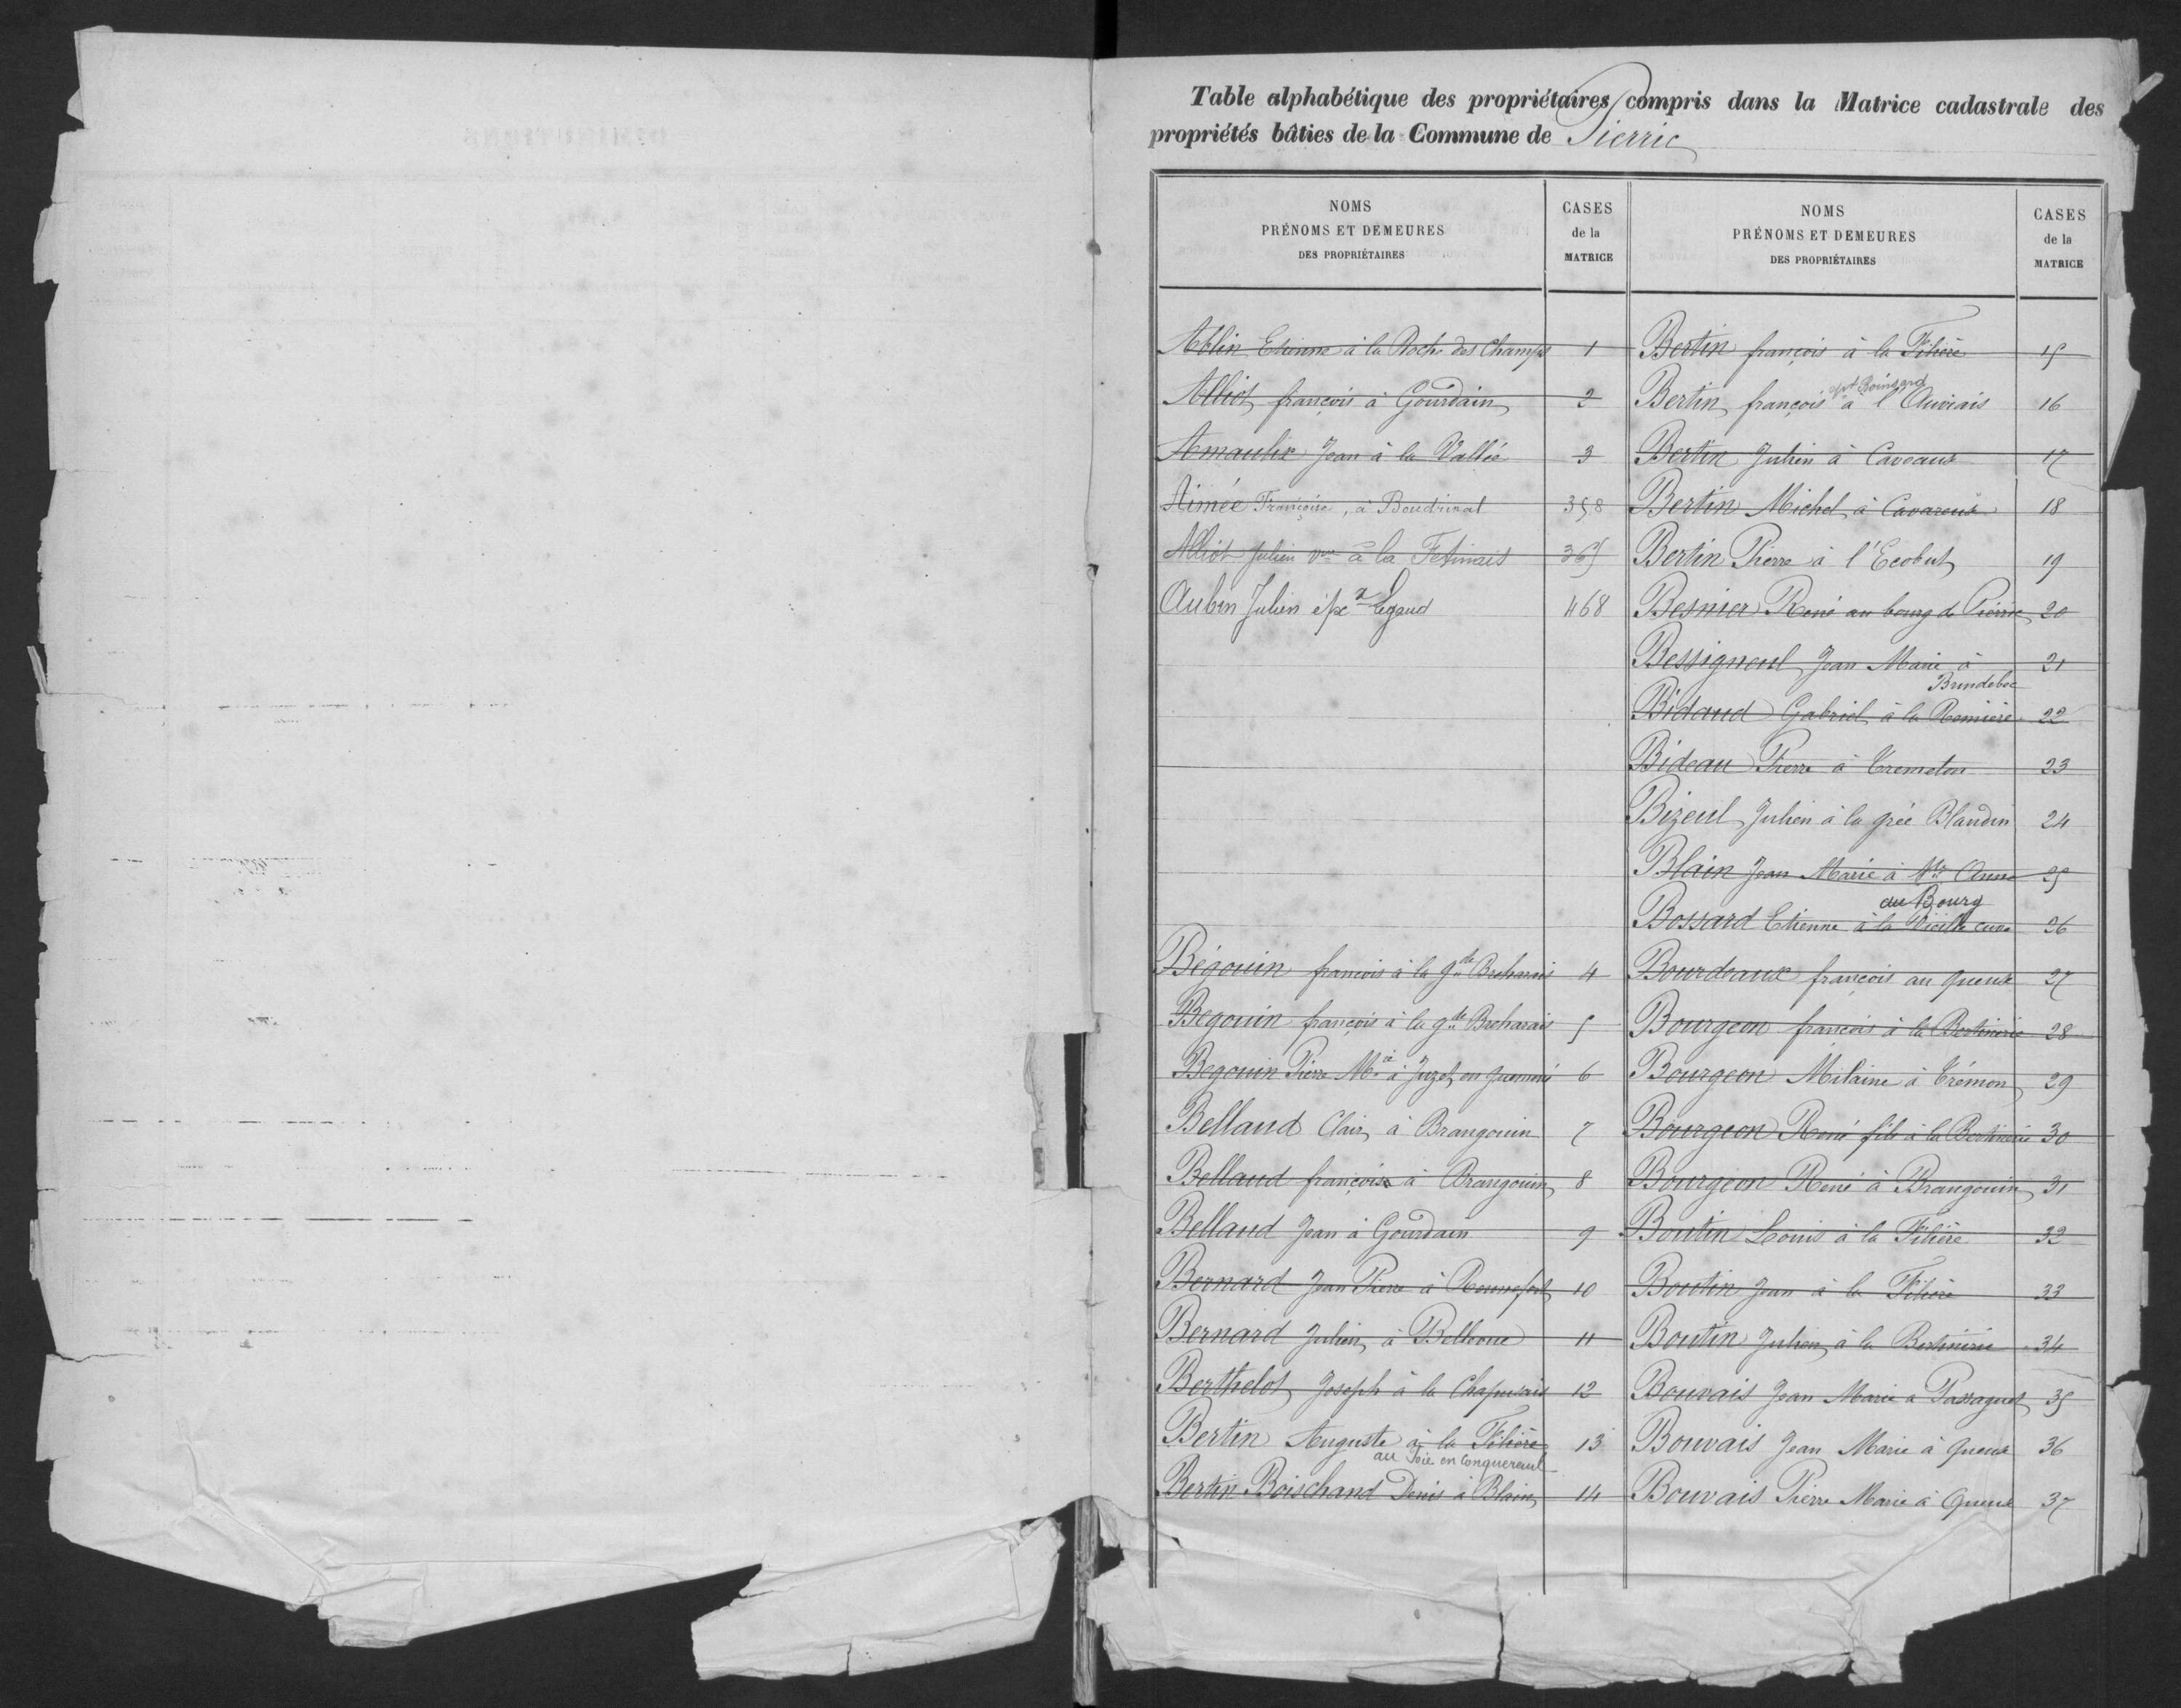 Table alphabétique des propriétaires compris dans la Matrice cadastrale des
propriétés bâties de la Commune de Pierric
NOMS
PRÉNOMS ET DEMEURES
DES PROPRIÉTAIRES
CASES
de la
MATRICE
Ablin Etienne à la Roche des Champs 1
Alliot françois à Gourdain 2
Amaulix Jean à la Vallée 3
Aimée Françoise, à Boudrinal 358
Alliot Julien à la Fetinais 365
Aubin Julien Legaud 468
Bégouin francois à la gde Breharais 4
Bégouin françois à la gde Breharais 5
Begouin Pierre Mie à Juzet en guemené 6
Bellaud Clair à Brangouin 7
Bellaud françois à Brangouin 8
Bellaud Jean à Gourdain 9
Bernard Jean Pierre à Rennefort 10
Bernard Julien à Bellevue 11
Berthelot Joseph à la Chapuisais 12
Bertin Auguste à la Filière 13
au Foie en Conquereuil
Bertin Boischand Denis à Blain 14
NOMS
PRÉNOMS ET DEMEURES
DES PROPRIÉTAIRES
CASES
de la
MATRICE
Bertin françois à la Filière 15
Bertin françois à l'Auviais 16
Bertin Julien à Caveaux 17
Bertin Michel à 18
Bertin Pierre à l'Ecobut 19
Besnier René au bourg de Pierric 20
Bessigneul Jean Marie à 21
Brindebec
Bidaud Gabriel à la Remière 22
Bideau Pierre à Tremelon 23
Bizeul Julien à la grée Blandin 24
Blain Jean Marie à Ste Anne 25
au Bourg
Bossard Etienne à la Vieille cure 26
Bourdeaux françois au queux 27
Bourgeon francois à la Bertinerie 28
Bourgeon Milaine à Trémon 29
Bourgeon René fils à la Bertinerie 30
Bourgeon René à Brangouin 31
Boutin Louis à la Filière 32
Boutin Jean à la Filière 33
Boutin Julien à la Bertinerie 34
Bouvais Jean Marie à Passaguet 35
Bouvais Jean Marie à Queux 36
Bouvais Pierre Marie à Queux 37